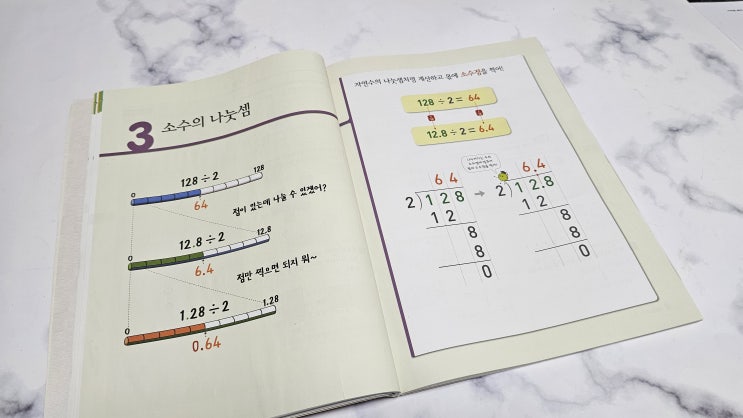 3 소수의 나눗셈
128÷2
0
128
64
점이 있는데 나눌 수 있겠어?
12.8÷2
0
12.8
6.4
점만 찍으면 되지 뭐~
1.28÷2
0
1.28
0.64
자연수의 나눗셈처럼 계산하고 몫에 소수점을 찍어!
128÷2=64
12.8÷2=6.4
6 4
2)1 2 8
1 2
8
8
0
→
6.4
2)1 2.8
1 2
8
8
0